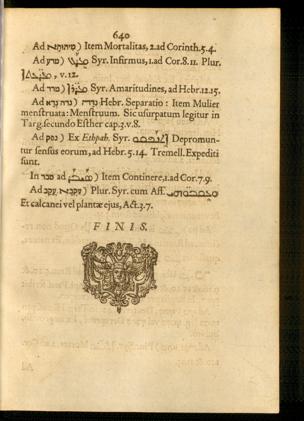 640
Ad מיתותא ) Item Mortalitas, 2. ad Corinth. 5. 4.
Ad מרע ) Syr. Infirmus, 1. ad Cor. 8. 11. Plur.
, v. 12.
Ad מרר ) Syr. Amaritudines, ad Hebr. 12. 15.
Ad נדה Hebr. Separatio : Item Mulier
menstruata : Menstruum. Sic usurpatum legitur in
Targ. secundo Esther cap. 3. v. 8.
Ad נפק ) Ex Ethpah. Syr. Depromun-
tur sensus eorum, ad Hebr. 5. 14. Tremell. Expediti
sunt.
In סבר ad ) Item Continere, 1. ad Cor. 7. 9.
Ad עקב ) Plur. Syr. cum Aff.
Et calcanei vel plantæ ejus, Act. 3. 7.
FINIS.